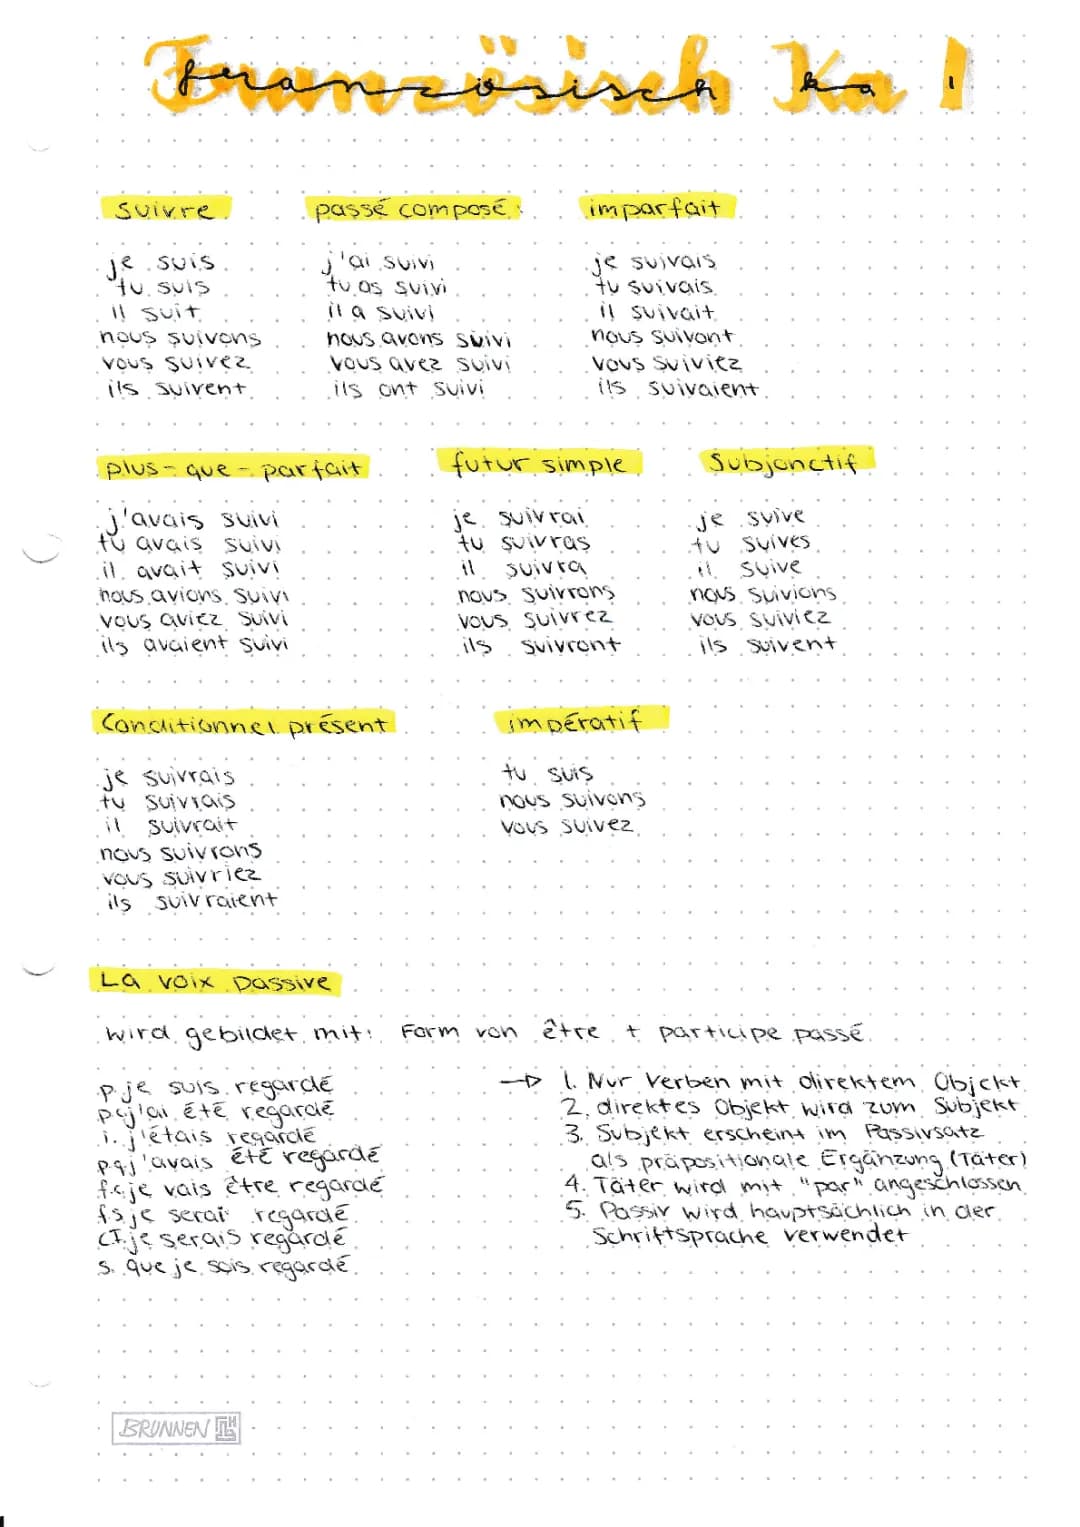 Französisch Ka 1
suivre
je suis
tu suis
il suit
nous suivons
vous suivez
ils suivent
passé composé:
j'ai suivi
tu as suivi
il a suivi
nous avons suivi
vous avez suivi
ils ont suivi
imparfait
je suivais
tu suivais
il suivait
nous suivont
vous suiviez
ils suivaient
plus-que-parfait
j'avais suivi
tu avais suivi
il avait suivi
nous avions suivi
vous aviez suivi
ils avaient suivi
futur simple
je suivrai
tu suivras
il suivra
nous suivrons
vous suivrez
ils suivront
Subjonctif
je suive
tu suives
il suive
nous suivions
vous suiviez
ils suivent
Conditionnel présent
je suivrais
tu suivrais
il suivrait
nous suivrons
vous suivriez
ils suivraient
impératif
tu suis
nous suivons
vous suivez
La voix passive
wird gebildet mit: Form von être + participe passé
p. je suis regardé
pc j'ai été regardé
i. j'étais regardé
pq j'avais été regardé
f.c je vais être regardé
fs je serai regardé
CI. je serais regardé
s. que je sois regardé
→ 1. Nur Verben mit direktem Objekt
2. direktes Objekt wird zum Subjekt
3. Subjekt erscheint im Passivsatz
als präpositionale Ergänzung (Täter)
4. Täter wird mit "par" angeschlossen
5. Passiv wird hauptsächlich in der
Schriftsprache verwendet
BRUNNEN